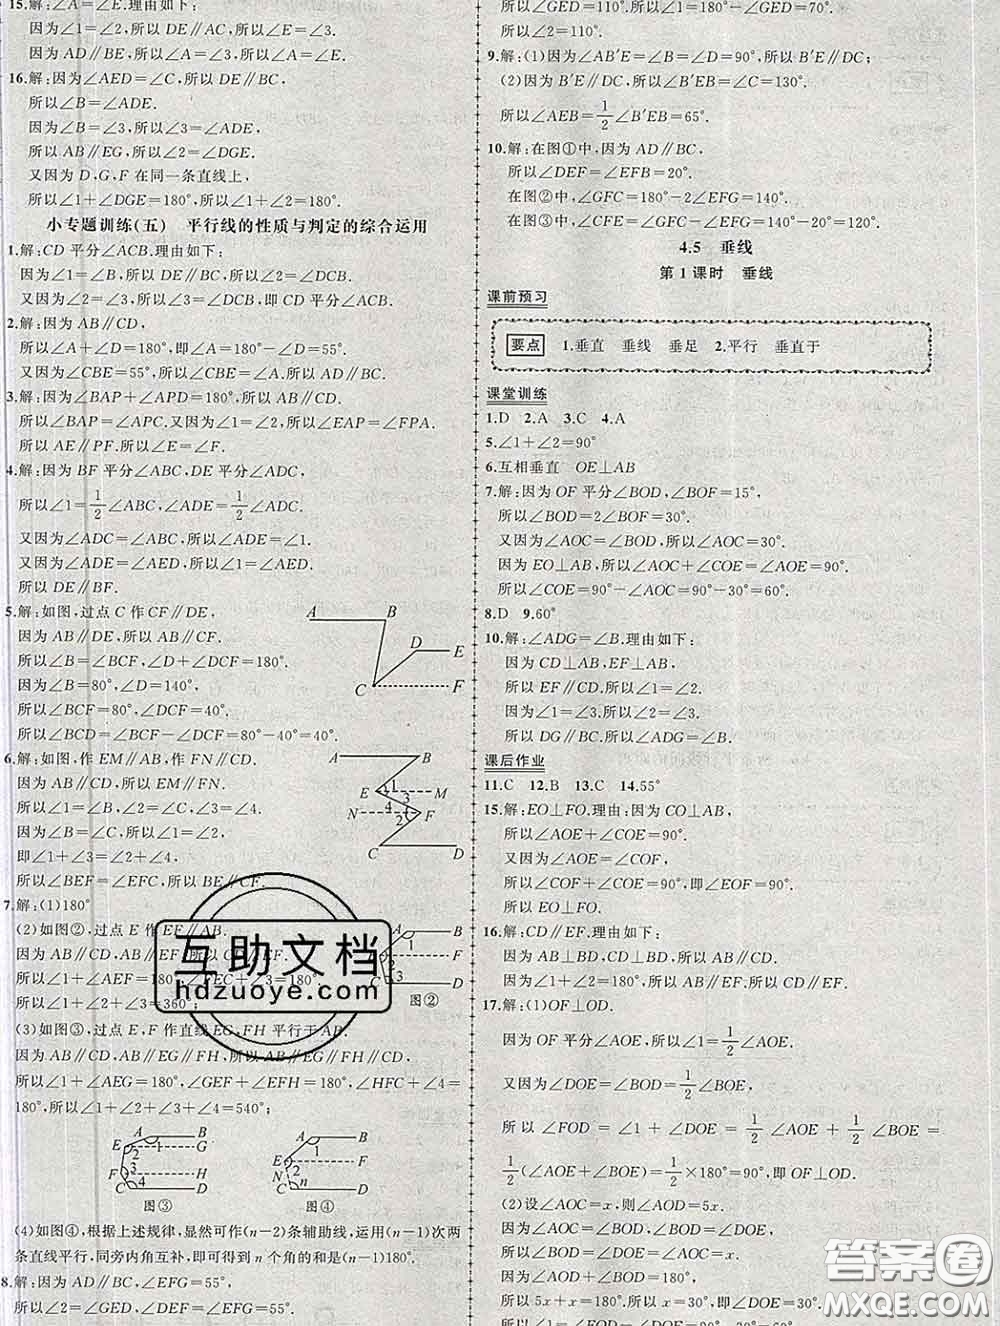 15.解:∠A=∠E.理由如下:
因为∠1=∠2,所以DE∥AC,所以∠E=∠3.
因为AD∥BE,所以∠A=∠3,所以∠A=∠E.
16.解:因为∠AED=∠C,所以DE∥BC,
所以∠B=∠ADE.
因为∠B=∠3,所以∠3=∠ADE,
所以AB∥EG,所以∠2=∠DGE.
又因为D,G,F在同一条直线上,
所以∠1+∠DGE=180°,所以∠1+∠2=180°.
小专题训练(五) 平行线的性质与判定的综合运用
1.解:CD平分∠ACB.理由如下:
因为∠1=∠B,所以DE∥BC,所以∠3=∠DCB.
又因为∠2=∠3,所以∠2=∠DCB,即CD平分∠ACB.
2.解:因为AB∥CD,
所以∠A+∠D=180°,即∠A=180°-∠D=55°.
又因为∠CBE=55°,所以∠A=∠CBE,所以AD∥BC.
3.解:因为∠BAP+∠APD=180°,所以AB∥CD.
所以∠BAP=∠APC.又因为∠1=∠2,所以∠EAP=∠APF,
所以AE∥PF.所以∠E=∠F.
4.解:因为BF平分∠ABC,DE平分∠ADC,
所以∠1=1/2∠ABC,∠ADE=1/2∠ADC.
又因为∠ADC=∠ABC,所以∠ADE=∠1.
又因为∠1=∠2,所以∠ADE=∠2.
所以DE∥BF.
5.解:如图,过点C作CF∥DE,
因为AB∥DE,所以AB∥CF.
所以∠B=∠BCF,∠D+∠DCF=180°.
因为∠B=80°,∠D=140°,
所以∠BCF=80°,∠DCF=40°.
所以∠BCD=∠BCF-∠DCF=80°-40°=40°.
A B
D E
C F
6.解:如图,作EM∥AB,作FN∥CD.
因为AB∥CD,所以EM∥FN.
所以∠B=∠1,∠3=∠4,∠C=∠2.
因为∠B=∠C,所以∠1=∠2.
即∠1+∠3=∠2+∠4,
所以∠BEF=∠EFC,所以BE∥CF.
A B
E 1 M
3
N 4 F
2
C D
7.解:(1)180°
(2)如图②,过点E作EF∥AB.
因为AB∥CD,所以
所以∠1+∠AEF=180°,∠FEC+∠3=180°.
所以∠1+∠2+∠3=360°;
A B
1
F
3
D
图②
(3)如图③,过点E,F作直线EG,FH平行于AB.
因为AB∥CD,所以AB∥EG∥FH,所以AB∥EG∥FH∥CD,
所以∠1+∠AEG=180°,∠GEF+∠EFH=180°,∠HFC+∠4=
180°,所以∠1+∠2+∠3+∠4=540°;
A B
E 1 G
2
F 3 H
C 4 D
图③
A B
1
E
2
N
C n D
图④
(4)如图④,根据上述规律,显然可作(n-2)条辅助线,运用(n-1)次两
条直线平行,同旁内角互补,即可得到n个角的和是(n-1)180°.
8.解:因为AD∥BC,∠EFG=55°,
所以∠2=∠GED,∠DEF=∠EFG=55°.
所以∠GED=110°.所以∠1=180°-∠GED=70°.
所以∠2=110°.
9.解:(1)因为∠AB′E=∠B=∠D=90°,所以B′E∥DC;
(2)因为B′E∥DC,所以∠B′EB=∠C=130°.
所以∠AEB=1/2∠B′EB=65°.
10.解:在图①中,因为AD∥BC,
所以∠DEF=∠EFB=20°.
在图②中,∠GFC=180°-2∠EFG=140°.
在图③中,∠CFE=∠GFC-∠EFG=140°-20°=120°.
4.5 垂线
第1课时 垂线
课前预习
要点 1.垂直 垂线 垂足 2.平行 垂直于
课堂训练
1.D 2.A 3.C 4.A
5.∠1+∠2=90°
6.互相垂直 OE⊥AB
7.解:因为OF平分∠BOD,∠BOF=15°,
所以∠BOD=2∠BOF=30°.
又因为∠AOC=∠BOD,所以∠AOC=30°.
因为EO⊥AB,所以∠AOC+∠COE=∠AOE=90°.
所以∠COE=90°-∠AOC=90°-30°=60°.
8.D 9.60°
10.解:∠ADG=∠B.理由如下:
因为CD⊥AB,EF⊥AB,
所以EF∥CD.所以∠1=∠2.
又因为∠1=∠3,所以∠2=∠3.
所以DG∥BC.所以∠ADG=∠B.
课后作业
11.C 12.B 13.C 14.55°
15.解:EO⊥FO.理由:因为CO⊥AB,
所以∠AOE+∠COE=90°.
又因为∠AOE=∠COF,
所以∠COF+∠COE=90°,即∠EOF=90°.
所以EO⊥FO.
16.解:CD∥EF.理由如下:
因为AB⊥BD,CD⊥BD,所以AB∥CD.
又因为∠1+∠2=180°,所以AB∥EF.所以CD∥EF.
17.解:(1)OF⊥OD.
因为OF平分∠AOE,所以∠1=∠FOE=1/2∠AOE.
又因为∠DOE=∠BOD=1/2∠BOE,
所以∠FOD=∠1+∠DOE=1/2∠AOE+1/2∠BOE=
1/2(∠AOE+∠BOE)=1/2×180°=90°,即OF⊥OD.
(2)设∠AOC=x,则∠AOD=5x.
因为∠AOC=∠BOD,∠BOD=∠DOE,
所以∠DOE=x.
所以5x+x=180°,所以x=30°,即∠DOE=30°.
互助文档
hdzuoye.com
答案圈
MXQE.COM